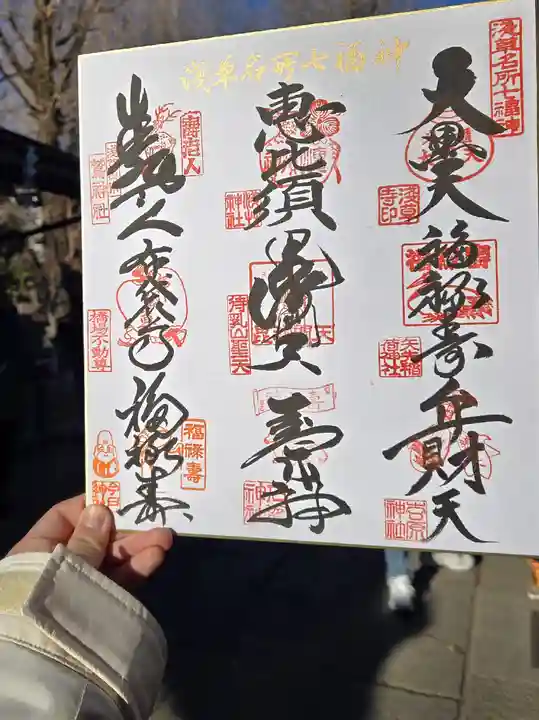 浅草名所七福神
浅草名所七福神
大黒天
浅草寺印
福禄寿
矢先稲荷神社
弁財天
吉原神社
恵比須
毘沙門天
待乳山聖天
寿老神
寿老人
寿老人
鷲神社
布袋尊
橋場不動尊
福禄寿
福禄寿
今戸神社